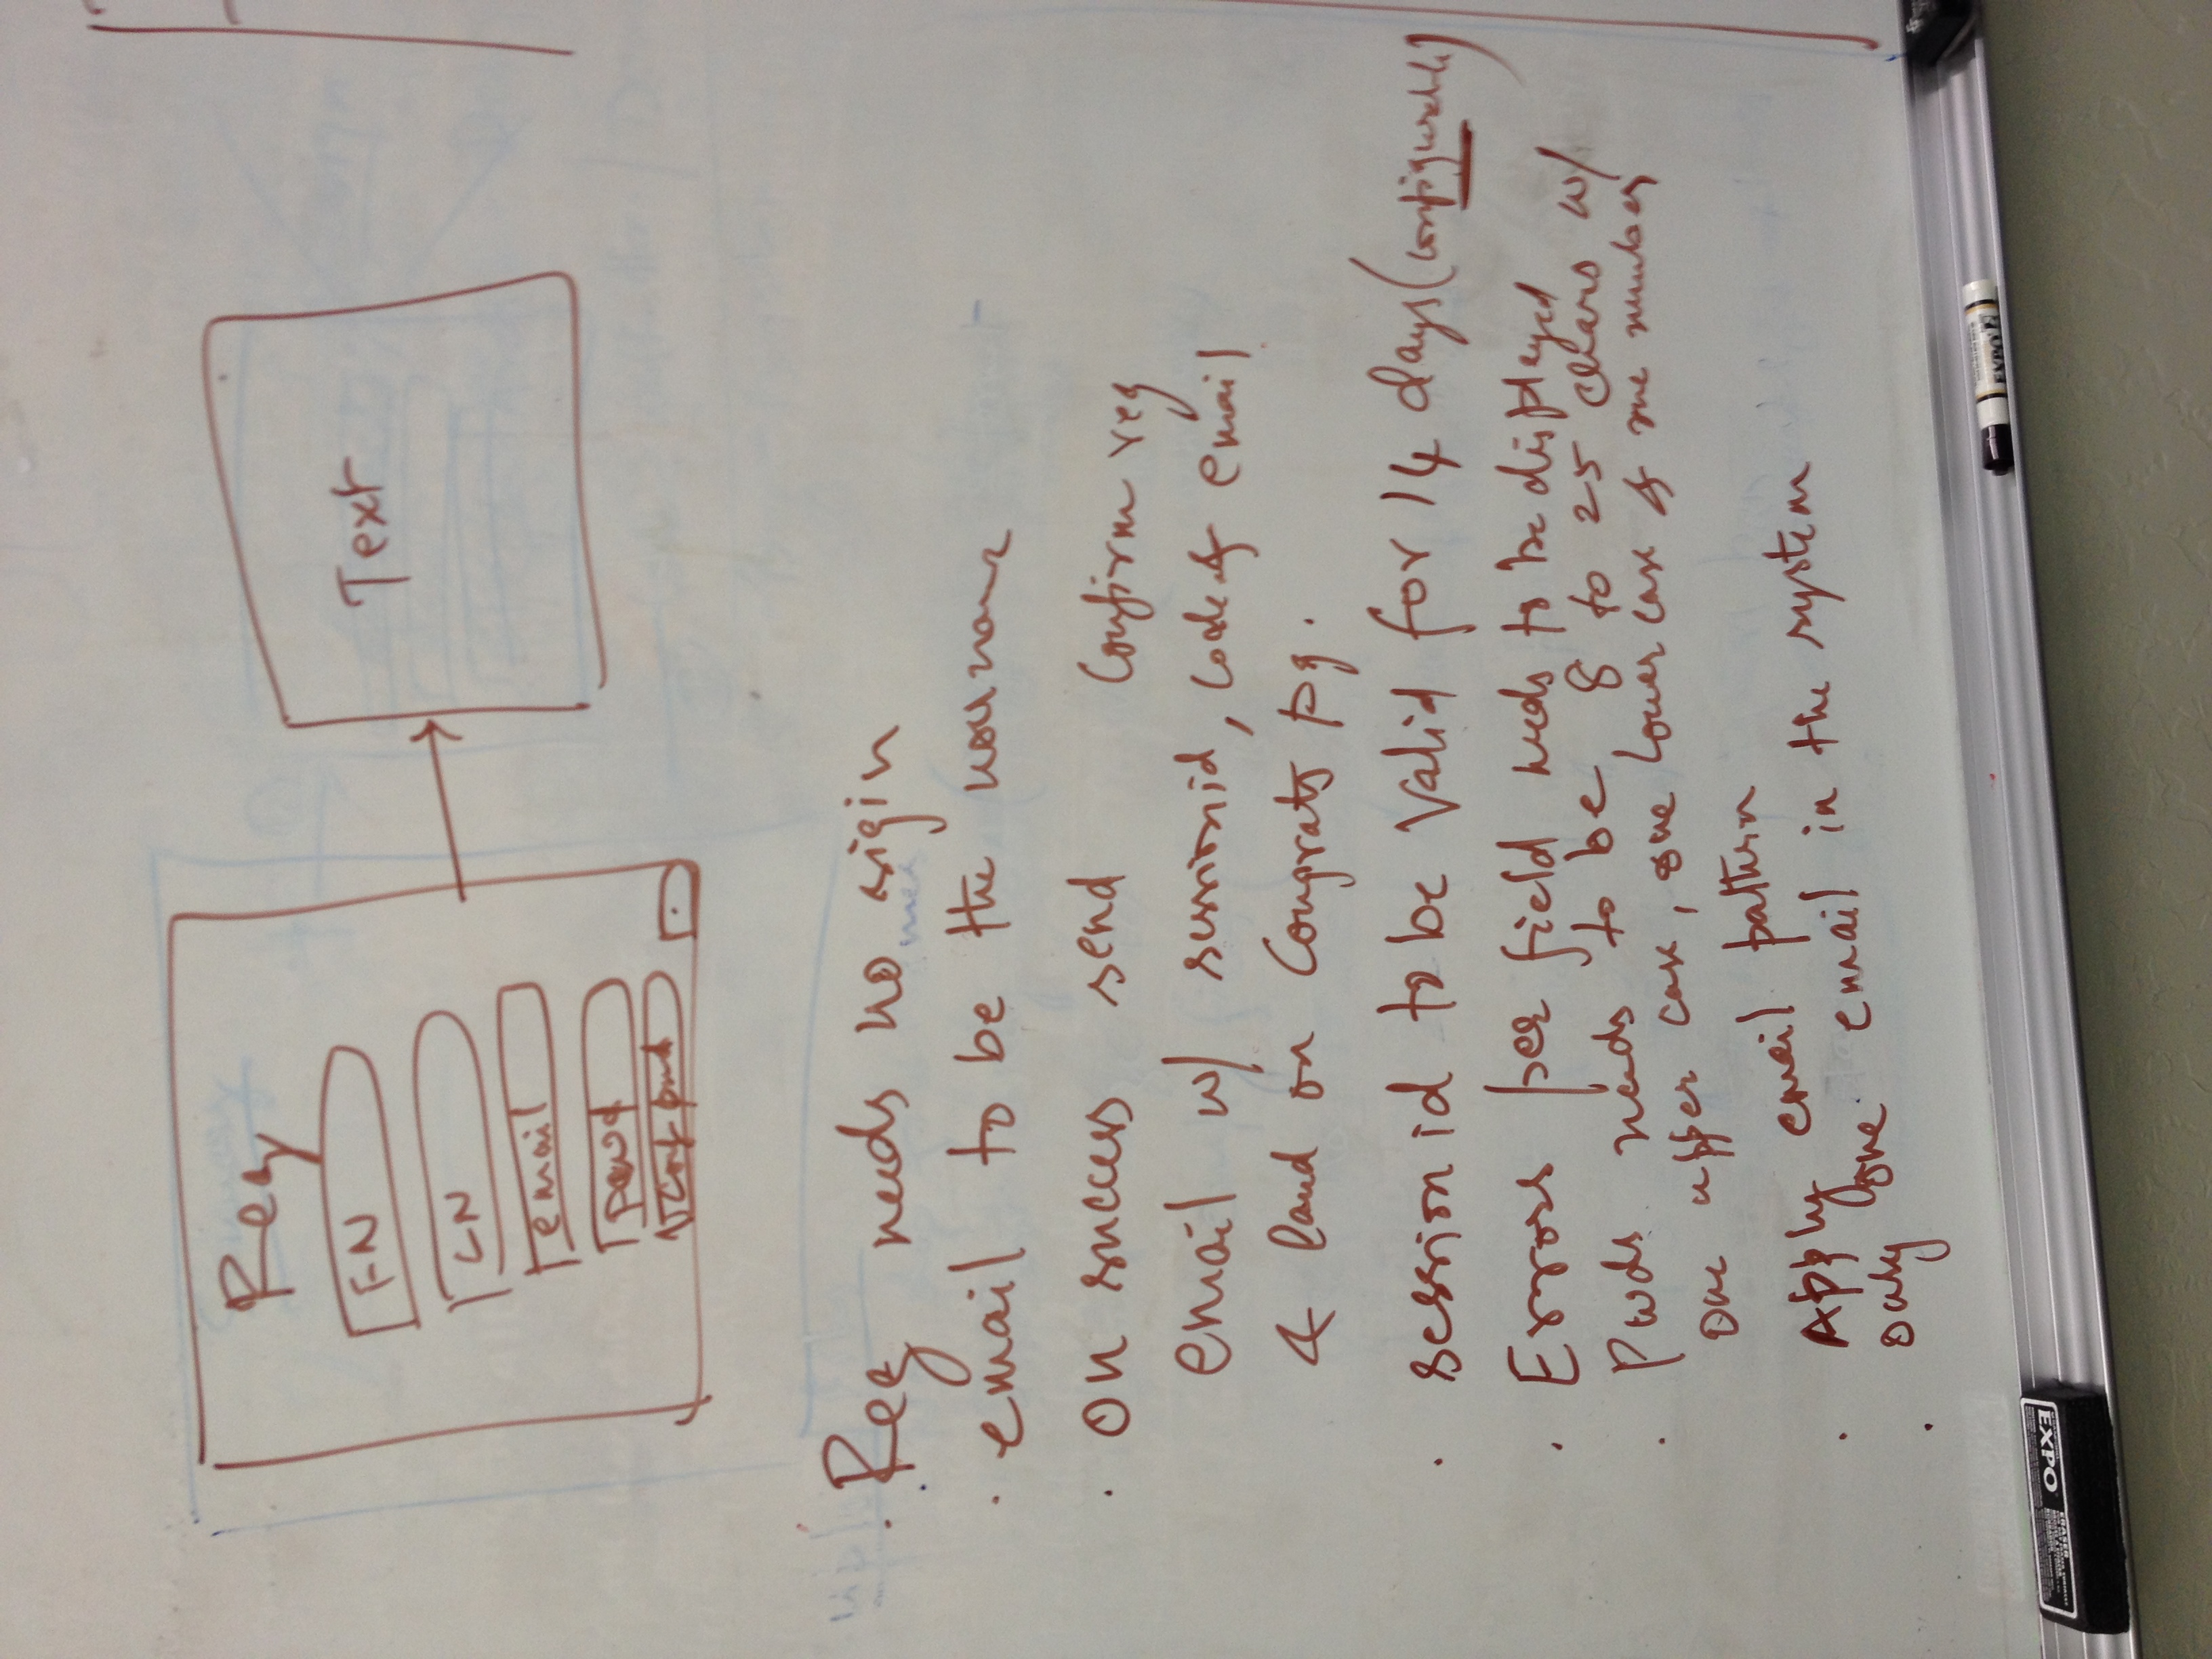 Reg
FN
LN
email
pswd
Conf pwd
Text
Reg needs no sigin
email to be the username
on success send Confirm reg
email w/ sessionid, code & email
& land on Congrats pg.
sessionid to be valid for 14 days (configurable)
Errors per field needs to be displayed
Pwds needs to be 8 to 25 chars w/
one upper case, one lower case & one number
Apply email pattern
only one email in the system
EXPO
ERASER
EXPO